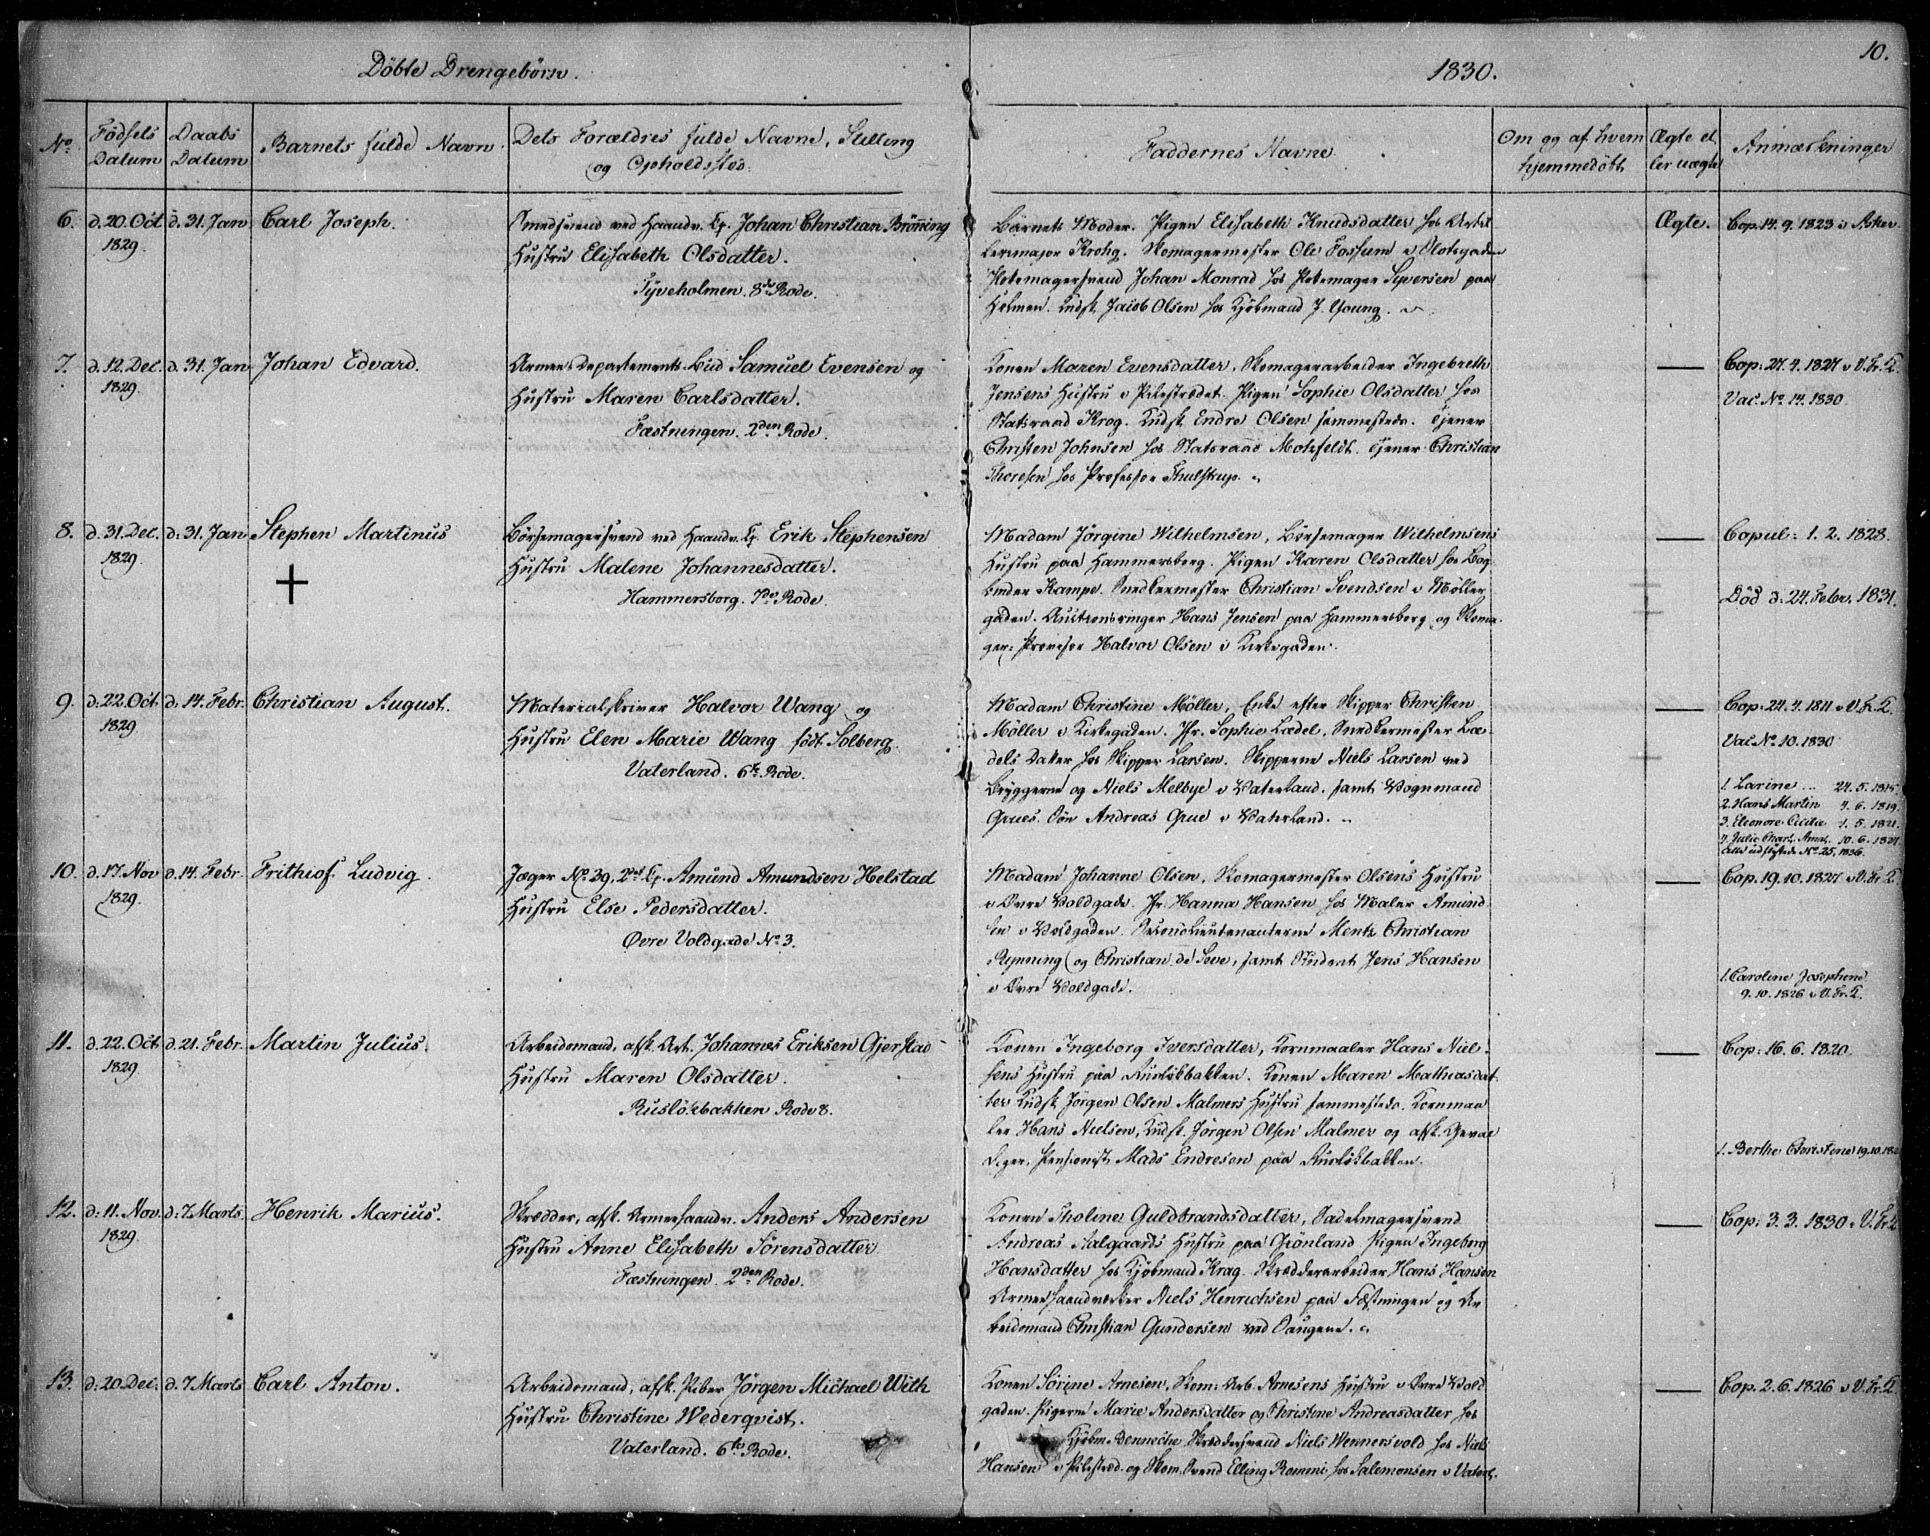 Döbte Drengebörn.
1830.
10.
No.
Födsels Datum
Daabs Datum
Barnets fulde Navn.
Dets Forældres fulde Navne, Stilling
og Opholdssted.
Faddernes Navne
Om og af hvem
hjemmedöbt
Ægte el-
ler uægte
Anmærkninger
6. d. 20. Oct. 1829. d. 31. Jan Carl Joseph.
Smedsvend ved Haandv. Cp. Johan Christian Brönning
Hustru Elisabeth Olsdatter.
Tyveholmen. 8de Rode.
Barnets Moder. Pigen Elisabeth Knudsdatter hos Artil-
lerimajor Krohg. Skomagermester Ole Fossum i Slotsgaden
Pottemagersvend Johan Monrad hos Pottemager Syversen paa
Holmen. Kudsk Jacob Olsen hos Kjöbmand J. Young.
Ægte.
Cop. 14. 9. 1823 i Asker
7. d. 12. Dec. 1829. d. 31. Jan Johan Edvard.
Armee Departements Bud Samuel Evensen og
Hustru Maren Carlsdatter.
Fæstningen. 2den Rode.
Konen Maren Evensdatter, Skomagerarbeider Ingebreth
Jensens Hustru i Pilestrædet. Pigen Sophie Olsdatter hos
Statsraad Krog. Kudsk Endre Olsen sammesteds. Tjener
Christen Johnsen hos Statsraad Motzfeldt. Tjener Christian
Thoresen hos Professor Thulstrup.
Cop: 27. 4. 1827 i V. Fr. K.
Vac. No. 14. 1830.
8. d. 31. Dec. 1829. d. 31. Jan Stephen Martinus
Börsemagersvend ved Haandv. Cp. Erik Stephensen
Hustru Malene Johannesdatter.
Hammersborg. 7de Rode.
Madam Jörgine Wilhelmsen, Börsemager Wilhelmsens
Hustru paa Hammersborg. Pigen Karen Olsdatter hos Bog-
binder Kampe. Snedkermester Christian Svendsen i Möller-
gaden. Auctionsringer Hans Jensen paa Hammersborg og Skoma-
ger: Provisor Halvor Olsen i Kirkegaden.
Copul: 1. 2. 1828.
Död d. 24. Febr. 1831.
9. d. 22. Oct. 1829. d. 14. Febr. Christian August.
Materialskriver Halvor Wang og
Hustru Elen Marie Wang födt Solberg.
Vaterland. 6te Rode.
Madam Christine Möller, Enke efter Skipper Christen
Möller i Kirkegaden. Jfr. Sophie Lædel, Snedkermester Læ-
dels Datter hos Skipper Larsen. Skipperne Niels Larsen ved
Bryggerne og Niels Melbye i Vaterland. samt Vognmand
Grues Sön Andreas Grue i Vaterland.
Cop: 24. 4. 1811 i V. Fr. K.
Vac No. 10. 1830
1. Larine ... 24. 5. 1815.
2. Hans Martin 4. 6. 1819.
3. Eleonore Cicilie 1. 5. 1821.
4. Julie Charl. Amal. 10. 6. 1827
alle udslyste No. 25, 1836.
10. d. 17. Nov 1829. d. 14. Febr. Frithiof Ludvig.
Jæger No. 39, 2det Cp. Amund Amundsen Helstad
Hustru Else Pedersdatter.
Övre Voldgade No. 3.
Madam Johanne Olsen, Skomagermester Olsens Hustru
i Övre Voldgade. Jfr. Hanna Hansen hos Maler Amund-
sen i Voldgaden. Secondlieutenanterne Mentz Christian
Rynning og Christian de Seve, samt Student Jens Hansen
i Övre Voldgade.
Cop. 19. 10. 1827 i V. Fr. K
1. Caroline Josephine
9. 10. 1826 i V. Fr. K.
11. d. 22. Oct 1829 d. 21. Febr. Martin Julius.
Arbeidsmand, afsk. Art. Johannes Eriksen Gjerstad
Hustru Maren Olsdatter.
Ruslökbakken Rode 8.
Konen Ingeborg Iversdatter, Kornmaaler Hans Niel-
sens Hustru paa Ruslökbakken. Konen Maren Mathiasdat-
ter Kudsk Jörgen Olsen Malmers Hustru sammesteds. Kornmaa-
ler Hans Nielsen, Kudsk Jörgen Olsen Malmer og afsk. Geval-
diger, Pensionist Mads Endresen paa Ruslökbakken.
Cop: 16. 6. 1820.
1. Berthe Christine 19.10.182
12. d: 11. Nov. 1829. d: 7. Marts. Henrik Marius.
Skrædder, afsk. Armeehaandv. Anders Andersen
Hustru Anne Elisabeth Sörensdatter
Fæstningen. 2den Rode.
Konen Tholine Guldbrandsdatter, Sadelmagersvend
Andreas Aalgaards Hustru paa Grönland Pigen Ingeborg
Hansdatter hos Kjöbmand Krag. Skrædderarbeider Hans Hansen
Armeehaandverker Niels Henrichsen paa Fæstningen og Ar-
beidsmand Christian Gundersen ved Saugene.
Cop: 3. 3. 1830. V. Fr. K
13. d: 20. Dec. d. 7. Marts Carl Anton.
Arbeidsmand, afsk. Piber Jörgen Michael With
Hustru Christine Wederqvist.
Vaterland. 6te Rode.
Konen Sörine Arnesen, Skom: Arb. Arnesens Hustru i Övre Vold-
gaden. Pigerne Marie Andersdatter og Christine Andreasdatter hos
Kjöbm. Benneche Skræddersvend Niels Wennersvold hos Niels
Hansen i Pilestræd. og Skom. Svend Elling Rommi hos Salomonsen i Vaterl.
Cop. 2. 6. 1826 i V. Fr. K.